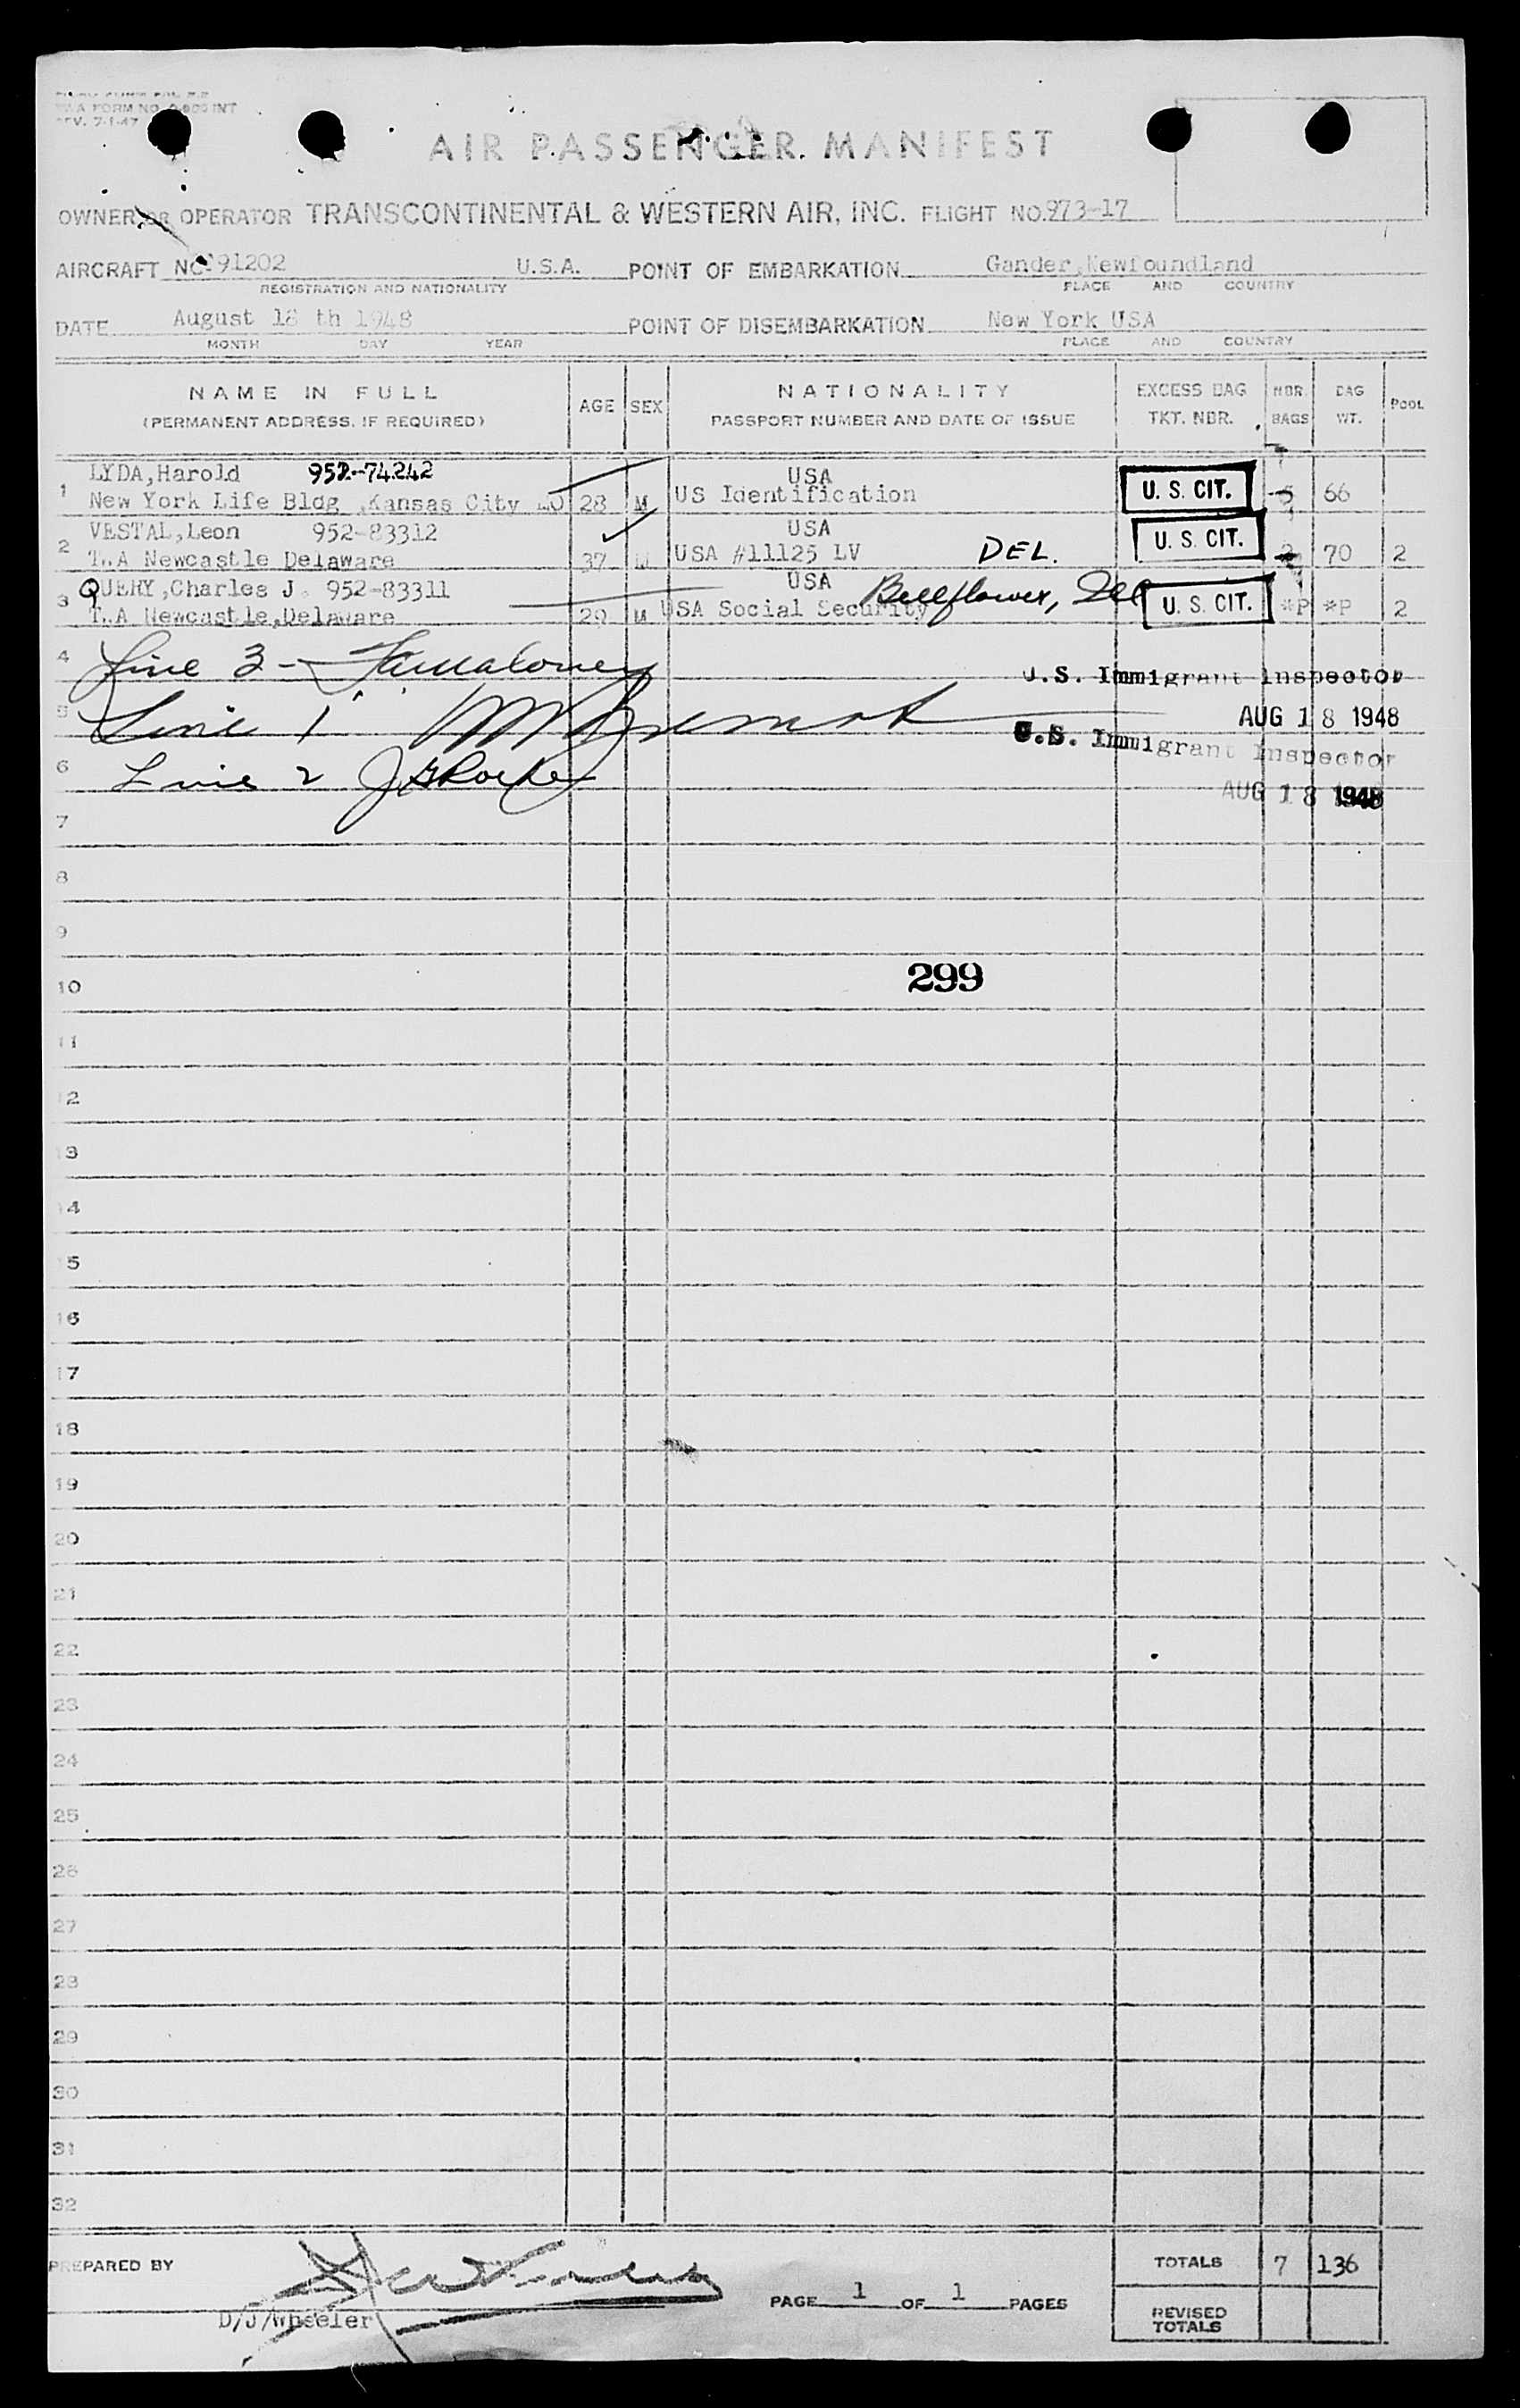 REV. 7-1-47
AIR PASSENGER MANIFEST
OWNER OR OPERATOR TRANSCONTINENTAL & WESTERN AIR, INC. FLIGHT NO. 973-17
AIRCRAFT NC-91202 U.S.A. POINT OF EMBARKATION Gander,Newfoundland
REGISTRATION AND NATIONALITY PLACE AND COUNTRY
DATE August 18 th 1948 POINT OF DISEMBARKATION New York USA
MONTH DAY YEAR PLACE AND COUNTRY
NAME IN FULL AGE SEX NATIONALITY EXCESS BAG NBR. BAG POOL
(PERMANENT ADDRESS, IF REQUIRED) PASSPORT NUMBER AND DATE OF ISSUE TKT. NBR. BAGS WT.
LYDA,Harold 952-74242 USA
1 New York Life Bldg ,Kansas City MO 28 M US Identification U. S. CIT. 5 66
VESTAL,Leon 952-83312 USA
2 TWA Newcastle Delaware 37 M USA #11125 LV DEL. U. S. CIT. 2 70 2
QUERY,Charles J. 952-83311 USA Bellflower, Ill
3 TWA Newcastle,Delaware 29 M USA Social Security U. S. CIT. *P *P 2
4 Line 3 - U.S. Immigrant Inspector
5 Line 1 AUG 18 1948
U.S. Immigrant Inspector
6 Line 2
AUG 18 1948
7
8
9
10 299
11
12
13
14
15
16
17
18
19
20
21
22
23
24
25
26
27
28
29
30
31
32
PREPARED BY TOTALS 7 136
D/J/Wheeler PAGE 1 OF 1 PAGES REVISED
TOTALS